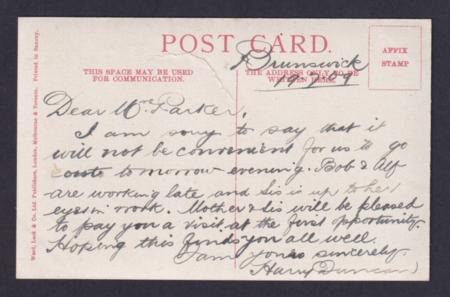 POST CARD.
AFFIX
STAMP
THIS SPACE MAY BE USED
FOR COMMUNICATION.
THE ADDRESS ONLY TO BE
WRITTEN HERE.
Brunswick
09
Dear Mrs Parker,
I am sorry to say that it
will not be convenient for us to go
to morrow evening. Bob & Alf
are working late and Sis is up to her
eyes in work. Mother & Sis will be pleased
to pay you a visit at the first opportunity.
Hoping this finds you all well.
I am yours sincerely.
Harry Duncan
Ward, Lock & Co. Ltd. Publishers, London, Melbourne & Toronto. Printed in Saxony.